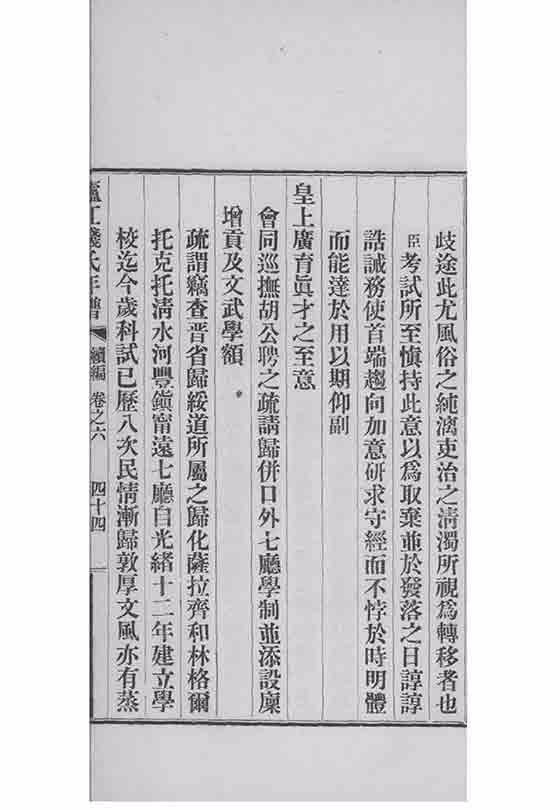 歧途此尤風俗之純漓吏治之淸濁所視爲轉移者也
臣考試所至愼持此意以爲取棄並於發落之日諄諄
誥誡務使首端趨向加意硏求守經而不悖於時明體
而能達於用以期仰副
皇上廣育眞才之至意
會同巡撫胡公聘之疏請歸併口外七廳學制並添設廩
增貢及文武學額
疏謂竊查晉省歸綏道所屬之歸化薩拉齊和林格爾
托克托淸水河豐鎭甯遠七廳自光緒十二年建立學
校迄今歲科試已歷八次民情漸歸敦厚文風亦有蒸
廬江錢氏年譜 續編 卷之六 四十四